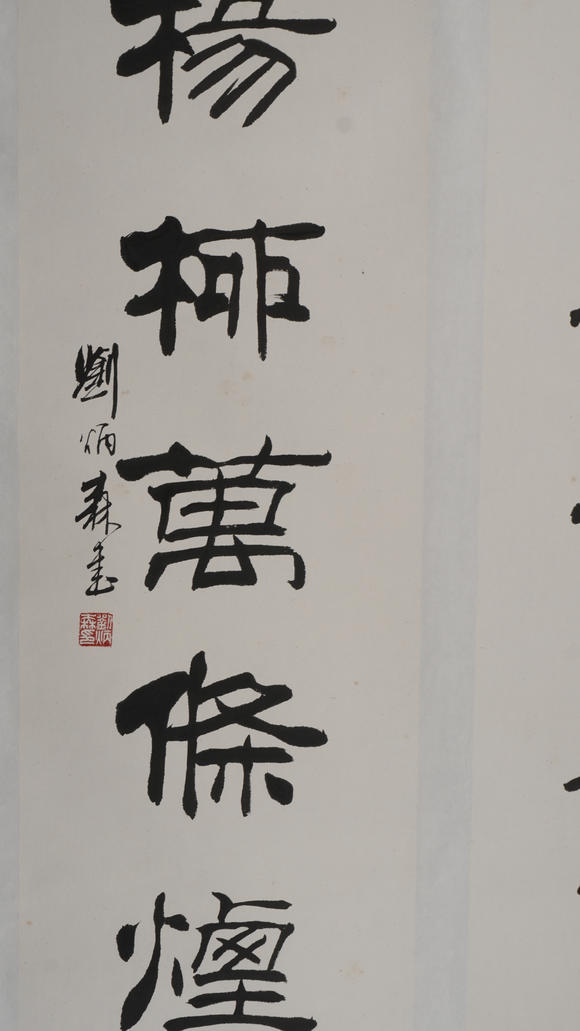 楊柳萬條煙
劉炳森書
劉炳森印